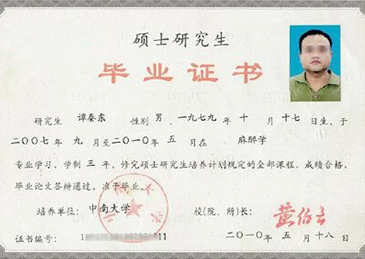 硕士研究生
毕业证书
研究生 谭秦东 性别 男，一九七九年 十月 十七日生，于
二〇〇七年 九月至二〇一〇年 五月在 麻醉学
专业学习，学制 三 年，修完硕士研究生培养计划规定的全部课程，成绩合格，
毕业论文答辩通过，准予毕业。
培养单位：中南大学 校(院、所)长：黄伯云
证书编号：1 11 二〇一〇年 五月十八日